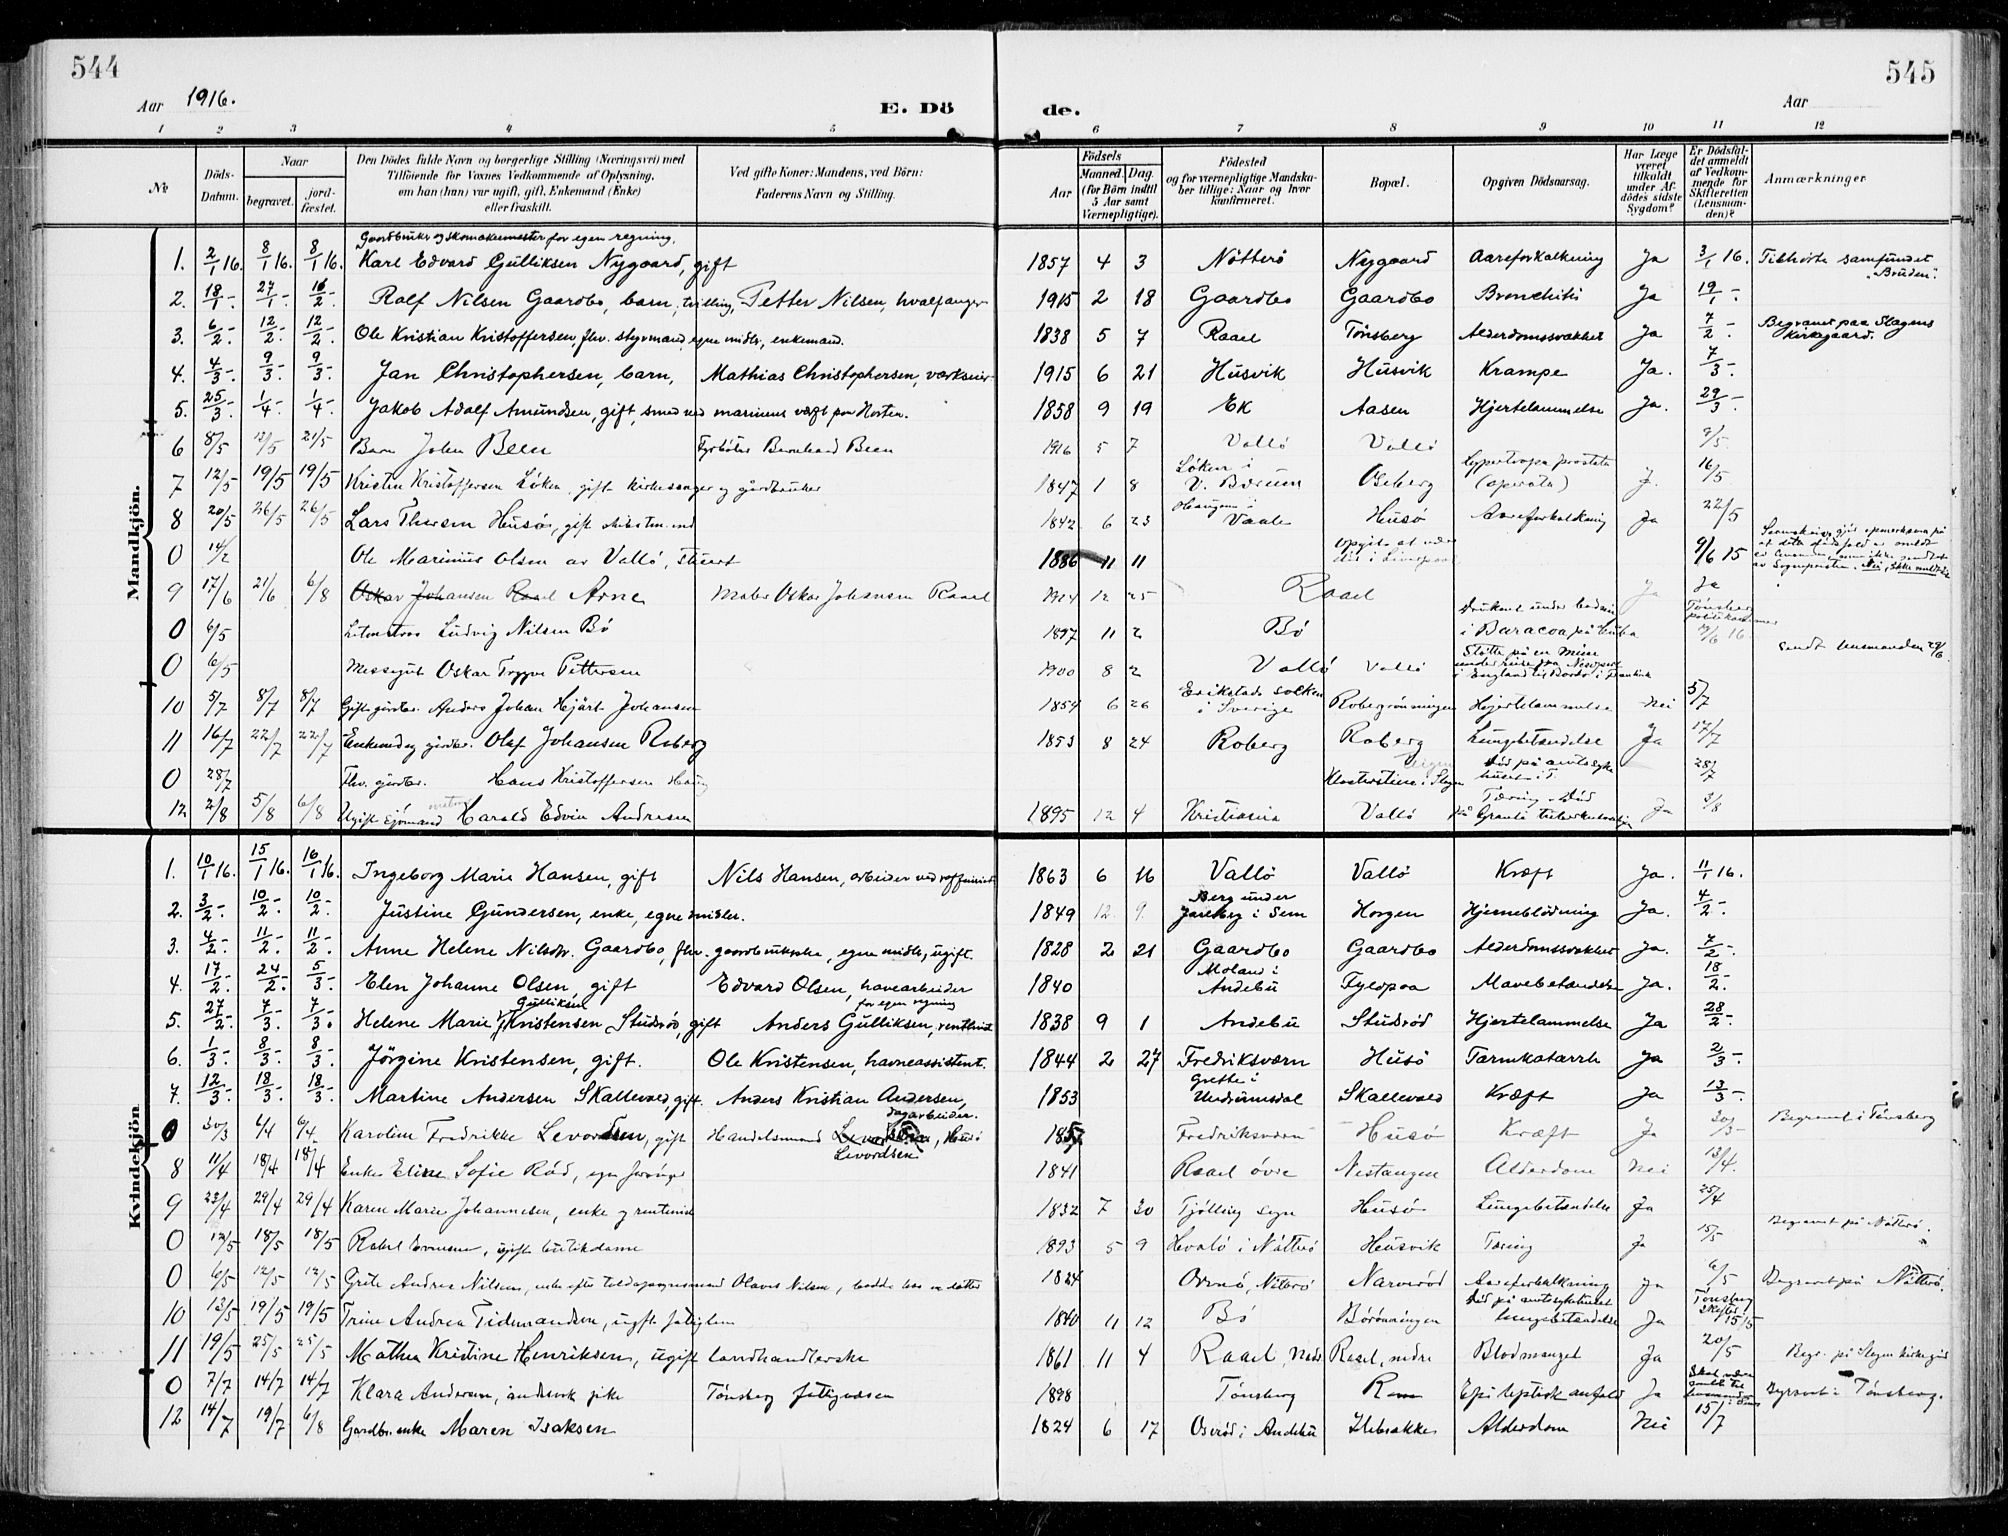 544
545
Aar 1916.
E. Dö
de.
Aar
1 2 3 4 5 6 7 8 9 10 11 12
No
Döds-
Datum.
Naar
begravet.
jord-
fæstet.
Den Dödes fulde Navn og borgerlige Stilling (Næringsvei) med
Tilföiende för Voxnes Vedkommende af Oplysning,
om han (hun) var ugift, gift, Enkemand (Enke)
eller fraskilt.
Ved gifte Koner: Mandens, ved Börn:
Faderens Navn og Stilling.
Födsels
Aar
Maaned. Dag.
(for Börn indtil
5 Aar samt
Værnepligtige).
Födested
og for værnepligtige Mandska-
ber tillige: Naar og hvor
konfirmeret.
Bopæl.
Opgiven Dödsaarsag.
Har Læge
været
tilkaldt
under Af-
dödes sidste
Sygdom?
Er Dödsfal-
det anmeldt
af Vedkom-
mende for
Skifteretten
(Lensman-
den)?
Anmærkninger
Mandkjön.
Gaardbruker og skomakermester for egen regning.
1. 2/1 16. 8/1 16. 8/1 16. Karl Edvard Gulliksen Nygaard, gift 1857 4 3 Nötterö Nygaard Aareforkalkning Ja 3/1 16. Tilhörte samfundet "Bruden".
2. 18/1- 27/1- Rolf Nilsen Gaardbo, barn, tvilling, Petter Nilsen, hvalfanger 1915 2 18 Gaardbo Gaardbo Bronchitis Ja 19/1-.
3. 6/2- 12/2- 12/2- Ole Kristian Kristoffersen, fhv. styrmand, egne midler, enkemand. 1838 5 7 Raael Tönsberg Alderdomssvakhet Ja 7/2-. Begravet paa Slagens Kirkegaard.
4. 4/3- 9/3- 9/3- Jan Christophersen, barn, Mathias Christophersen, værkseier 1915 6 21 Husvik Husvik Krampe Ja. 7/3-.
5. 25/3- 1/4- 1/4- Jakob Adolf Amundsen, gift, smed ved marinens værft paa Horten. 1858 9 19 Ek Aasen Hjertelammelse Ja. 29/3-.
6 8/5 12/5 21/5 Barn John Been Fyrböter Bernhard Been 1916 5 7 Vallö Vallö 9/5.
7 12/5 19/5 19/5 Kristen Kristoffersen Löken, gift kirkesanger og gårdbruker 1847 1 8 Löken i V. Bærum Oseberg (operato) J. 16/5
8 20/5 26/5 26/5 Lars Thorsen Husö, gift 1842 6 23 Vaale Husö Aareforkalkning Ja 22/5
0 14/2 Ole Marinius Olsen av Vallö, Stuert 1886 11 11 9/6 15
9 17/6 21/6 6/8 Oskar Johansen Raael Arne Maler Oskar Johansen Raael 1914 12 25 Raael Ja Ja
0 6/5 Letmatros Ludvig Nilsen Bö 1897 11 2 Bö Druknet under badning i Baracoa på Cuba Tönsberg politikammer 19/6 16 sendt lensmanden 29/6.
0 6/5 Messegut Oskar Trygve Pettersen 1900 8 2 Vallö Vallö Stötte på en mine under reise fra Newport i England til Bordo i Frankrik
10 5/7 8/7 8/7 Gift gårdbr. Anders Johan Hjärt Johansen 1854 6 26 Erikstads socken i Sverige Robergrönningen Hjertelammelse Nei 5/7
11 16/7 22/7 22/7 Enkemd og gårdbr. Olaf Johansen Roberg 1853 8 24 Roberg Roberg Lungebetændelse Ja 17/7
0 28/7 Fhv. gårdbr. Hans Kristoffersen Haug Klosterstien i Slagen Död på amtssyke huset i T. 28/7
12 2/8 5/8 6/8 Ugift Sjömand Harald Edvin Andresen 1895 12 4 Kristiania Vallö Tæring. Död på Granli tuberkulosehjem Ja 3/8
Kvindekjön.
1. 10/1 16. 15/1 16. 16/1 16. Ingeborg Marie Hansen, gift Nils Hansen, arbeider ved raffineriet 1863 6 16 Vallö Vallö Kræft Ja. 11/1 16.
2. 3/2- 10/2- 10/2- Justine Gundersen, enke, egne midler. 1849 12. 9. Berg under Jarlsberg i Sem Horgen Hjerneblödning Ja. 4/2-.
3. 4/2- 11/2- 11/2- Anne Helene Nilsdr. Gaardbo, fhv. gaardbrukerske, egne midler, ugift. 1828 2 21 Gaardbo Gaardbo Alderdomssvakhet Ja. 7/2-.
4. 17/2- 24/2- 5/3- Elen Johanne Olsen, gift Edvard Olsen, havearbeider for egen regning 1840 Moland i Andebu Fyldpaa Mavebetændelse Ja. 18/2-.
5. 27/2- 7/3- 7/3. Helene Marie Gulliksen Kristensen Studröd, gift Anders Gulliksen, rentenist 1838 9 1 Andebu Studröd Hjertelammelse Ja 28/2-.
6. 1/3- 8/3- 8/3- Jörgine Kristensen, gift. Ole Kristensen, havneassistent. 1844 2 27 Fredriksværn Husö Tarmkatarrh Ja 2/3-.
7. 12/3- 18/3- 18/3- Martine Andersen Skallevold, gift. Anders Kristian Andersen, dagarbeider. 1853 Grette i Undrumsdal Skallevold Kræft Ja 13/3-.
0 30/3 6/4 6/4 Karoline Fredrikke Levordsen, gift Handelsmand Levordsen, Husö 1857 Fredriksværn Husö Kræft Ja 30/3- Begravet i Tönsberg
8 11/4 18/4 18/4 Enke Eline Sofie Röd, egen forsörger 1841 Raael övre Nestangen Alderdom Nei 13/4.
9 23/4 29/4 29/4 Karen Marie Johannesen, enke og rentenist 1832 7 30 Tjölling sogn Husö Lungebetændelse Ja 25/4
0 12/5 18/5 18/5 ugift butikdame 1893 5 9 Hvalö i Nötterö Husvik Tæring Ja 15/5 Begravet på Nötterö.
0 6/5 12/5 12/5 Grete Andrea Nilsen, enke efter toldopsynsmand Olavus Nilsen, bodde hos en datter 1824 Ormö, Nötterö Narveröd Aareforkalkning Ja 6/5 Begravet på Nötterö.
10 13/5 19/5 19/5 Trine Andrea Tidemandsen, ugift fattiglem 1840 11 12 Bö Börönningen Död på amtssykehuset Lungebetændelse Ja Tönsberg 15/5
11 19/5 25/5 25/5 Mathea Kristine Henriksen, ugift landhandlerske 1861 11 4 Raael, nedre Raael, nedre Blodmangel Ja 20/5 Begr. på Slagen kirkegård
0 7/7 14/7 14/7 Klara Andersen, sindssvk pike Tönsberg fattigvæsen 1898 Tönsberg Rom Epileptisk anfald Ja Begravet i Tönsberg.
12 14/7 19/7 6/8 Gårdbr.enke Maren Isaksen 1824 6 17 Oseröd i Andebu Ilebrække Alderdom Nei 15/7